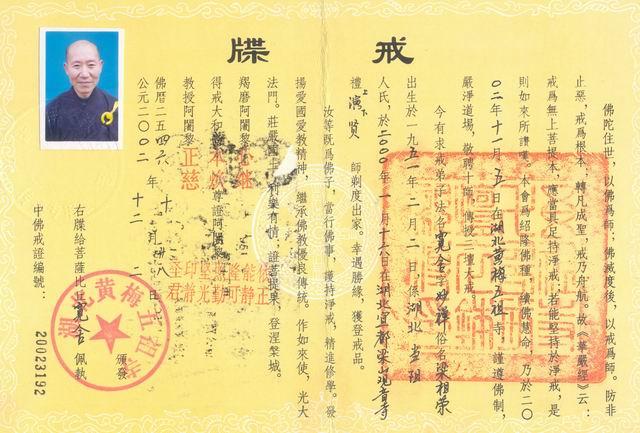 戒牒
佛陀住世，以佛爲師；佛滅度後，以戒爲師。防非
止惡，戒爲根本；轉凡成聖，戒乃舟航。故《華嚴經》云：
戒爲無上菩提本，應當具足持淨戒；若能堅持於淨戒，是
則如來所讚嘆。本會爲紹隆佛種，續佛慧命，乃於二〇
〇二年十一月五日在湖北黄梅五祖寺，謹遵佛制，
嚴淨道場，敬聘十師，傳授三壇大戒。
今有求戒弟子法名寬舍字 祥俗名梁相荣
出生於一九五一年二月二日，係湖北当阳
人氏，於二〇〇〇年一月十六日在湖北宜都梁山观音寺
禮上演下賢師剃度出家。幸遇勝緣，獲登戒品。
汝等既爲佛子，當行佛事，護持淨戒，精進修學。發
揚愛國愛教精神，繼承佛教優良傳統。作如來使，光大
法門。莊嚴國土，利樂有情，證菩提果，登涅槃城。
得戒大和尚本焕
羯磨阿闍黎
教授阿闍黎正慈
尊證阿闍黎
佛曆二五四六年十月廿八日
公元二〇〇二年十二月二日
右牒給菩薩比丘寬舍佩執
湖北黄梅五祖寺
頒發
中佛戒證編號：20023192